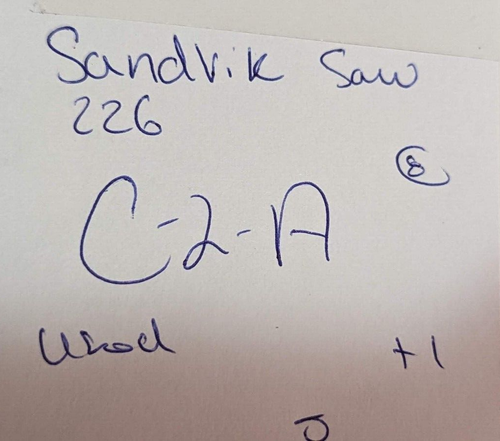 Sandvik Saw
226
8
C-2-A
Used
+1